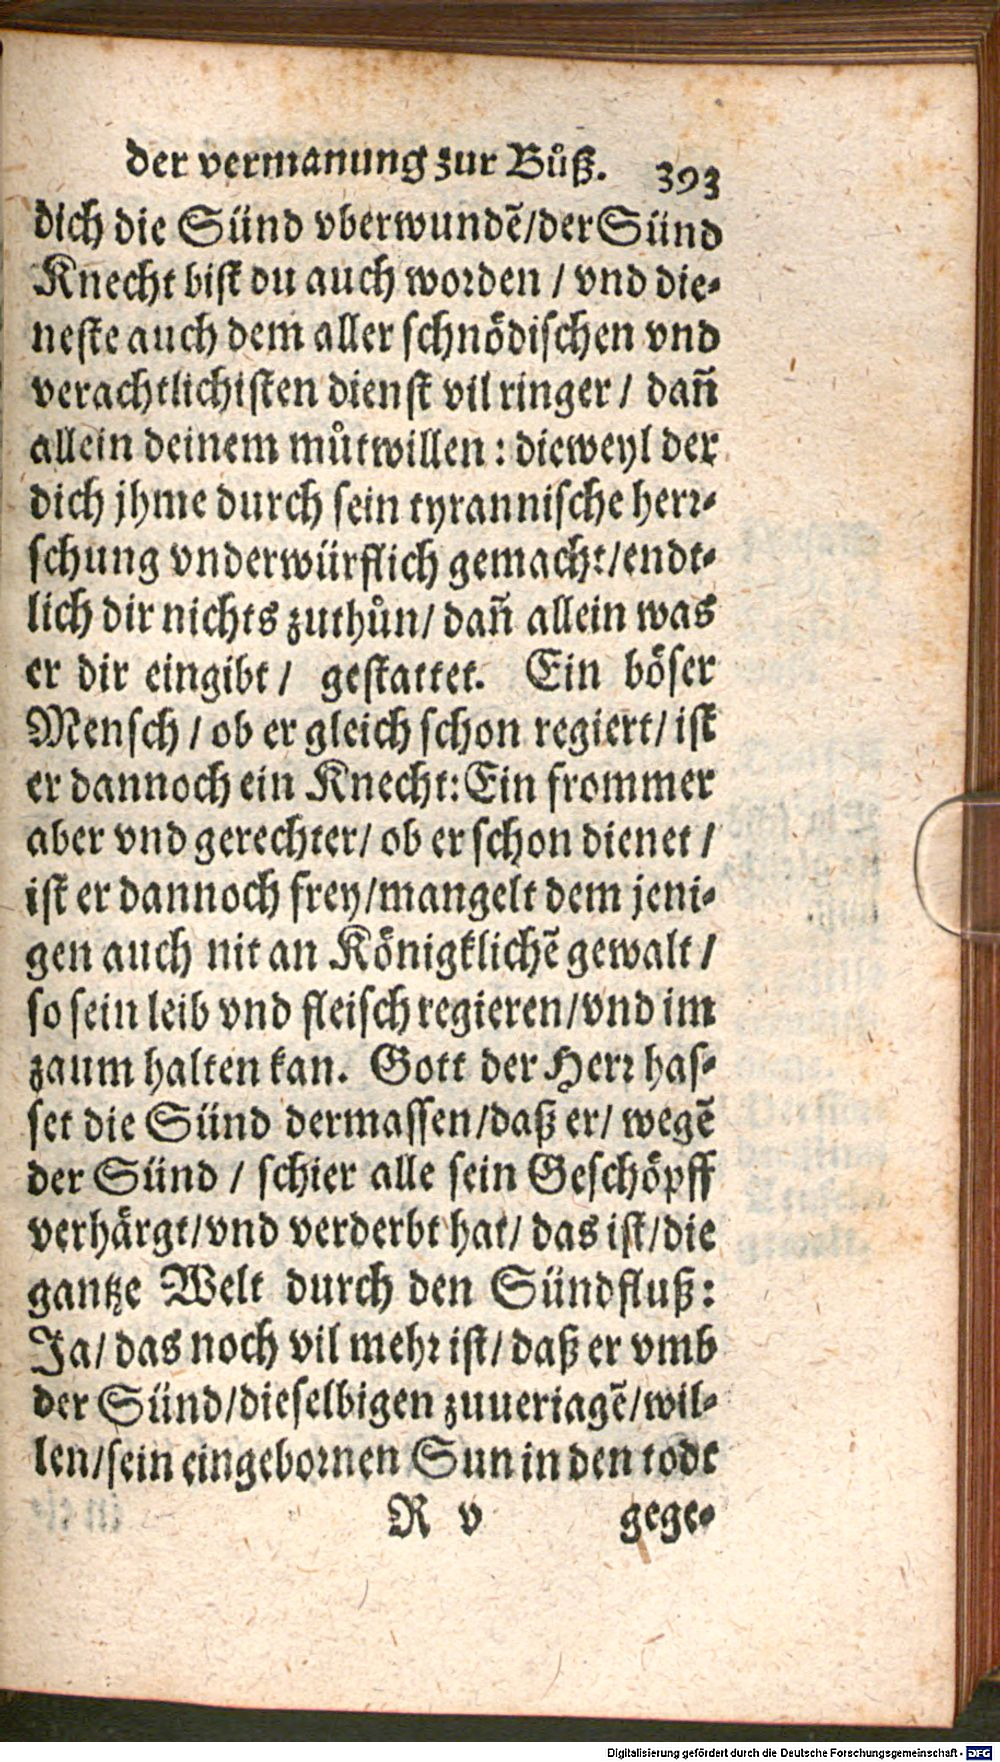 der vermanung zur Bůß. 393
dich die Sünd vberwundẽ/der Sünd
Knecht bist du auch worden / vnd die-
neste auch dem aller schnödischen vnd
verachtlichisten dienst vil ringer / dañ
allein deinem můtwillen : dieweyl der
dich jhme durch sein tyrannische herr-
schung vnderwürflich gemacht/endt-
lich dir nichts zuthůn/ dañ allein was
er dir eingibt / gestattet. Ein böser
Mensch / ob er gleich schon regiert/ ist
er dannoch ein Knecht: Ein frommer
aber vnd gerechter/ ob er schon dienet /
ist er dannoch frey/mangelt dem jeni-
gen auch nit an Königklichẽ gewalt /
so sein leib vnd fleisch regieren/vnd im
zaum halten kan. Gott der Herr has-
set die Sünd dermassen/daß er/ wegẽ
der Sünd / schier alle sein Geschöpff
verhärgt/vnd verderbt hat/ das ist/die
gantze Welt durch den Sündfluß:
Ja/ das noch vil mehr ist/ daß er vmb
der Sünd/dieselbigen zuueriagẽ/wil-
len/sein eingebornen Sun in den todt
R v gege-
Digitalisierung gefördert durch die Deutsche Forschungsgemeinschaft - DFG